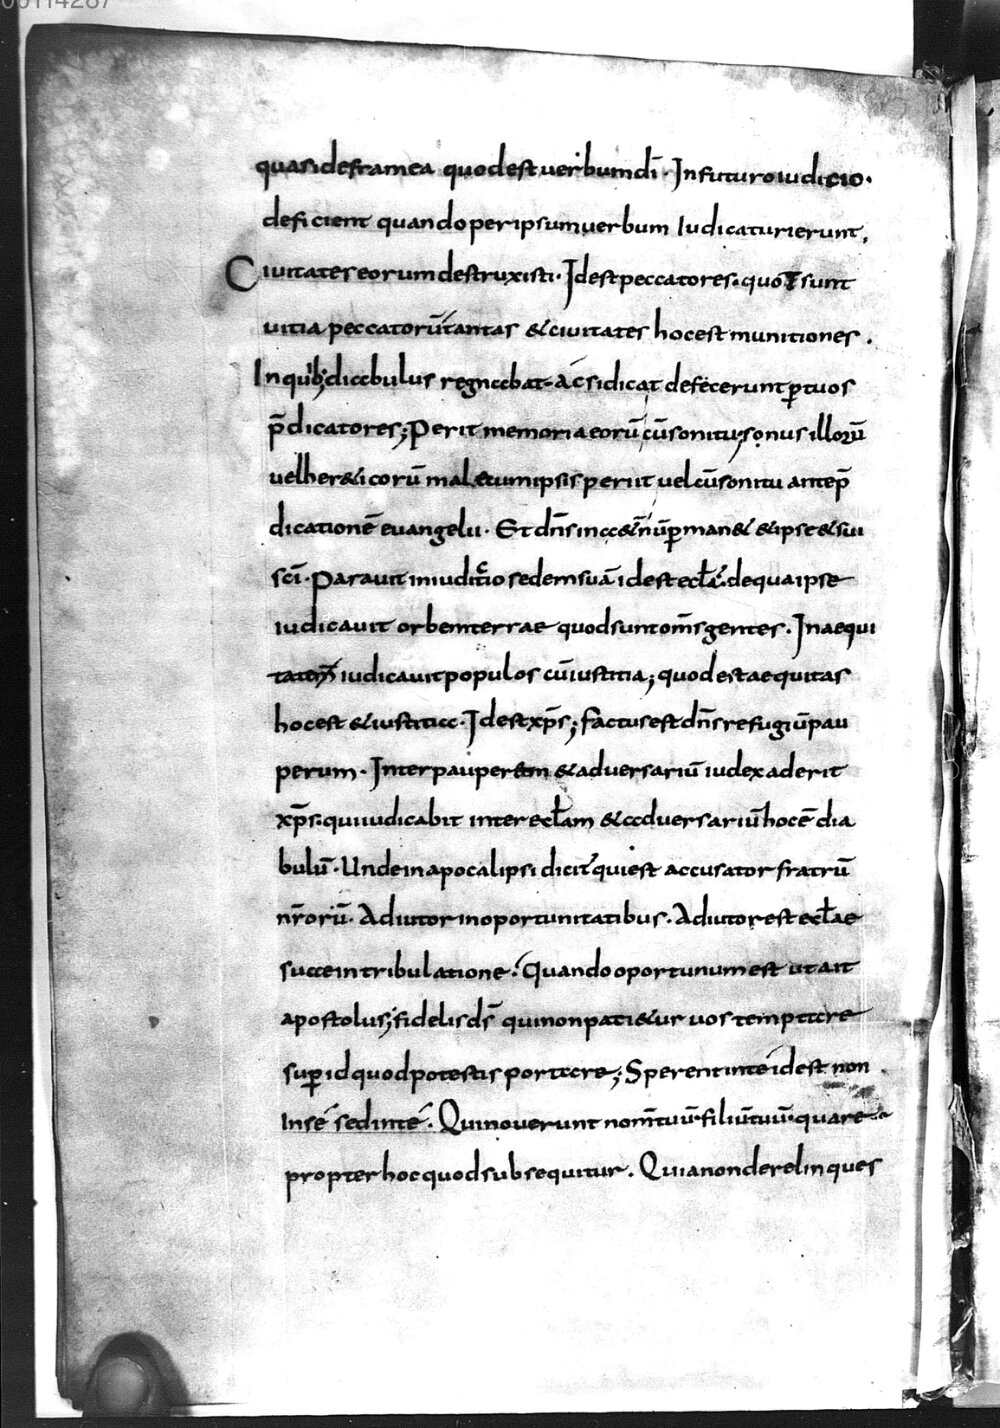 quasi deframea quod est uerbum dī · In futuro iudicio ·
deficient quando per ipsum uerbum Iudicaturi erunt,
Ciuitates eorum destruxisti · Id est peccatores · quot sunt
uitia peccatorū tantas & ciuitates hoc est munitiones .
In quib; diabulus regnabat · Ac si dicat defecerunt ꝑ tuos
p̄dicatores ; Perit memoria eorū cū sonitu ; sonus illorū
uel her&icorū mal& cum ipsis periit uel cū sonitu antep̄
dicationē euangelii · Et dn̄s in a&nū ꝑman& & ipse & sui
sc̄i · Parauit in iuditio sedem suā id est ecłā · de qua ipse
iudicauit orbem terrae quod sunt om̄s gentes . In aequi
tatem iudicauit populos cū iustitia ; quod est aequitas
hoc est & iustitia · Id est xp̄s ; factus est dn̄s refugiū pau
perum · Inter pauperem & aduersariū iudex aderit
xp̄s · qui iudicabit inter ecłam & aduersariū hoc ē dia
bulū · Unde in apocalipsi dicit qui est accusator fratrū
nr̄orū · Adiutor in oportunitatibus . Adiutor est ecłae
suae in tribulatione . Quando oportunum est ut ait
apostolus ; fidelis ds̄ qui non pati&ur uos temptare
suꝑ id quod potestis portare ; Sperent in te id est non
In se sed in te . Qui nouerunt nom̄ tuū · filiū tuū · quare
propter hoc quod subsequitur . Quia non derelinques
00114287